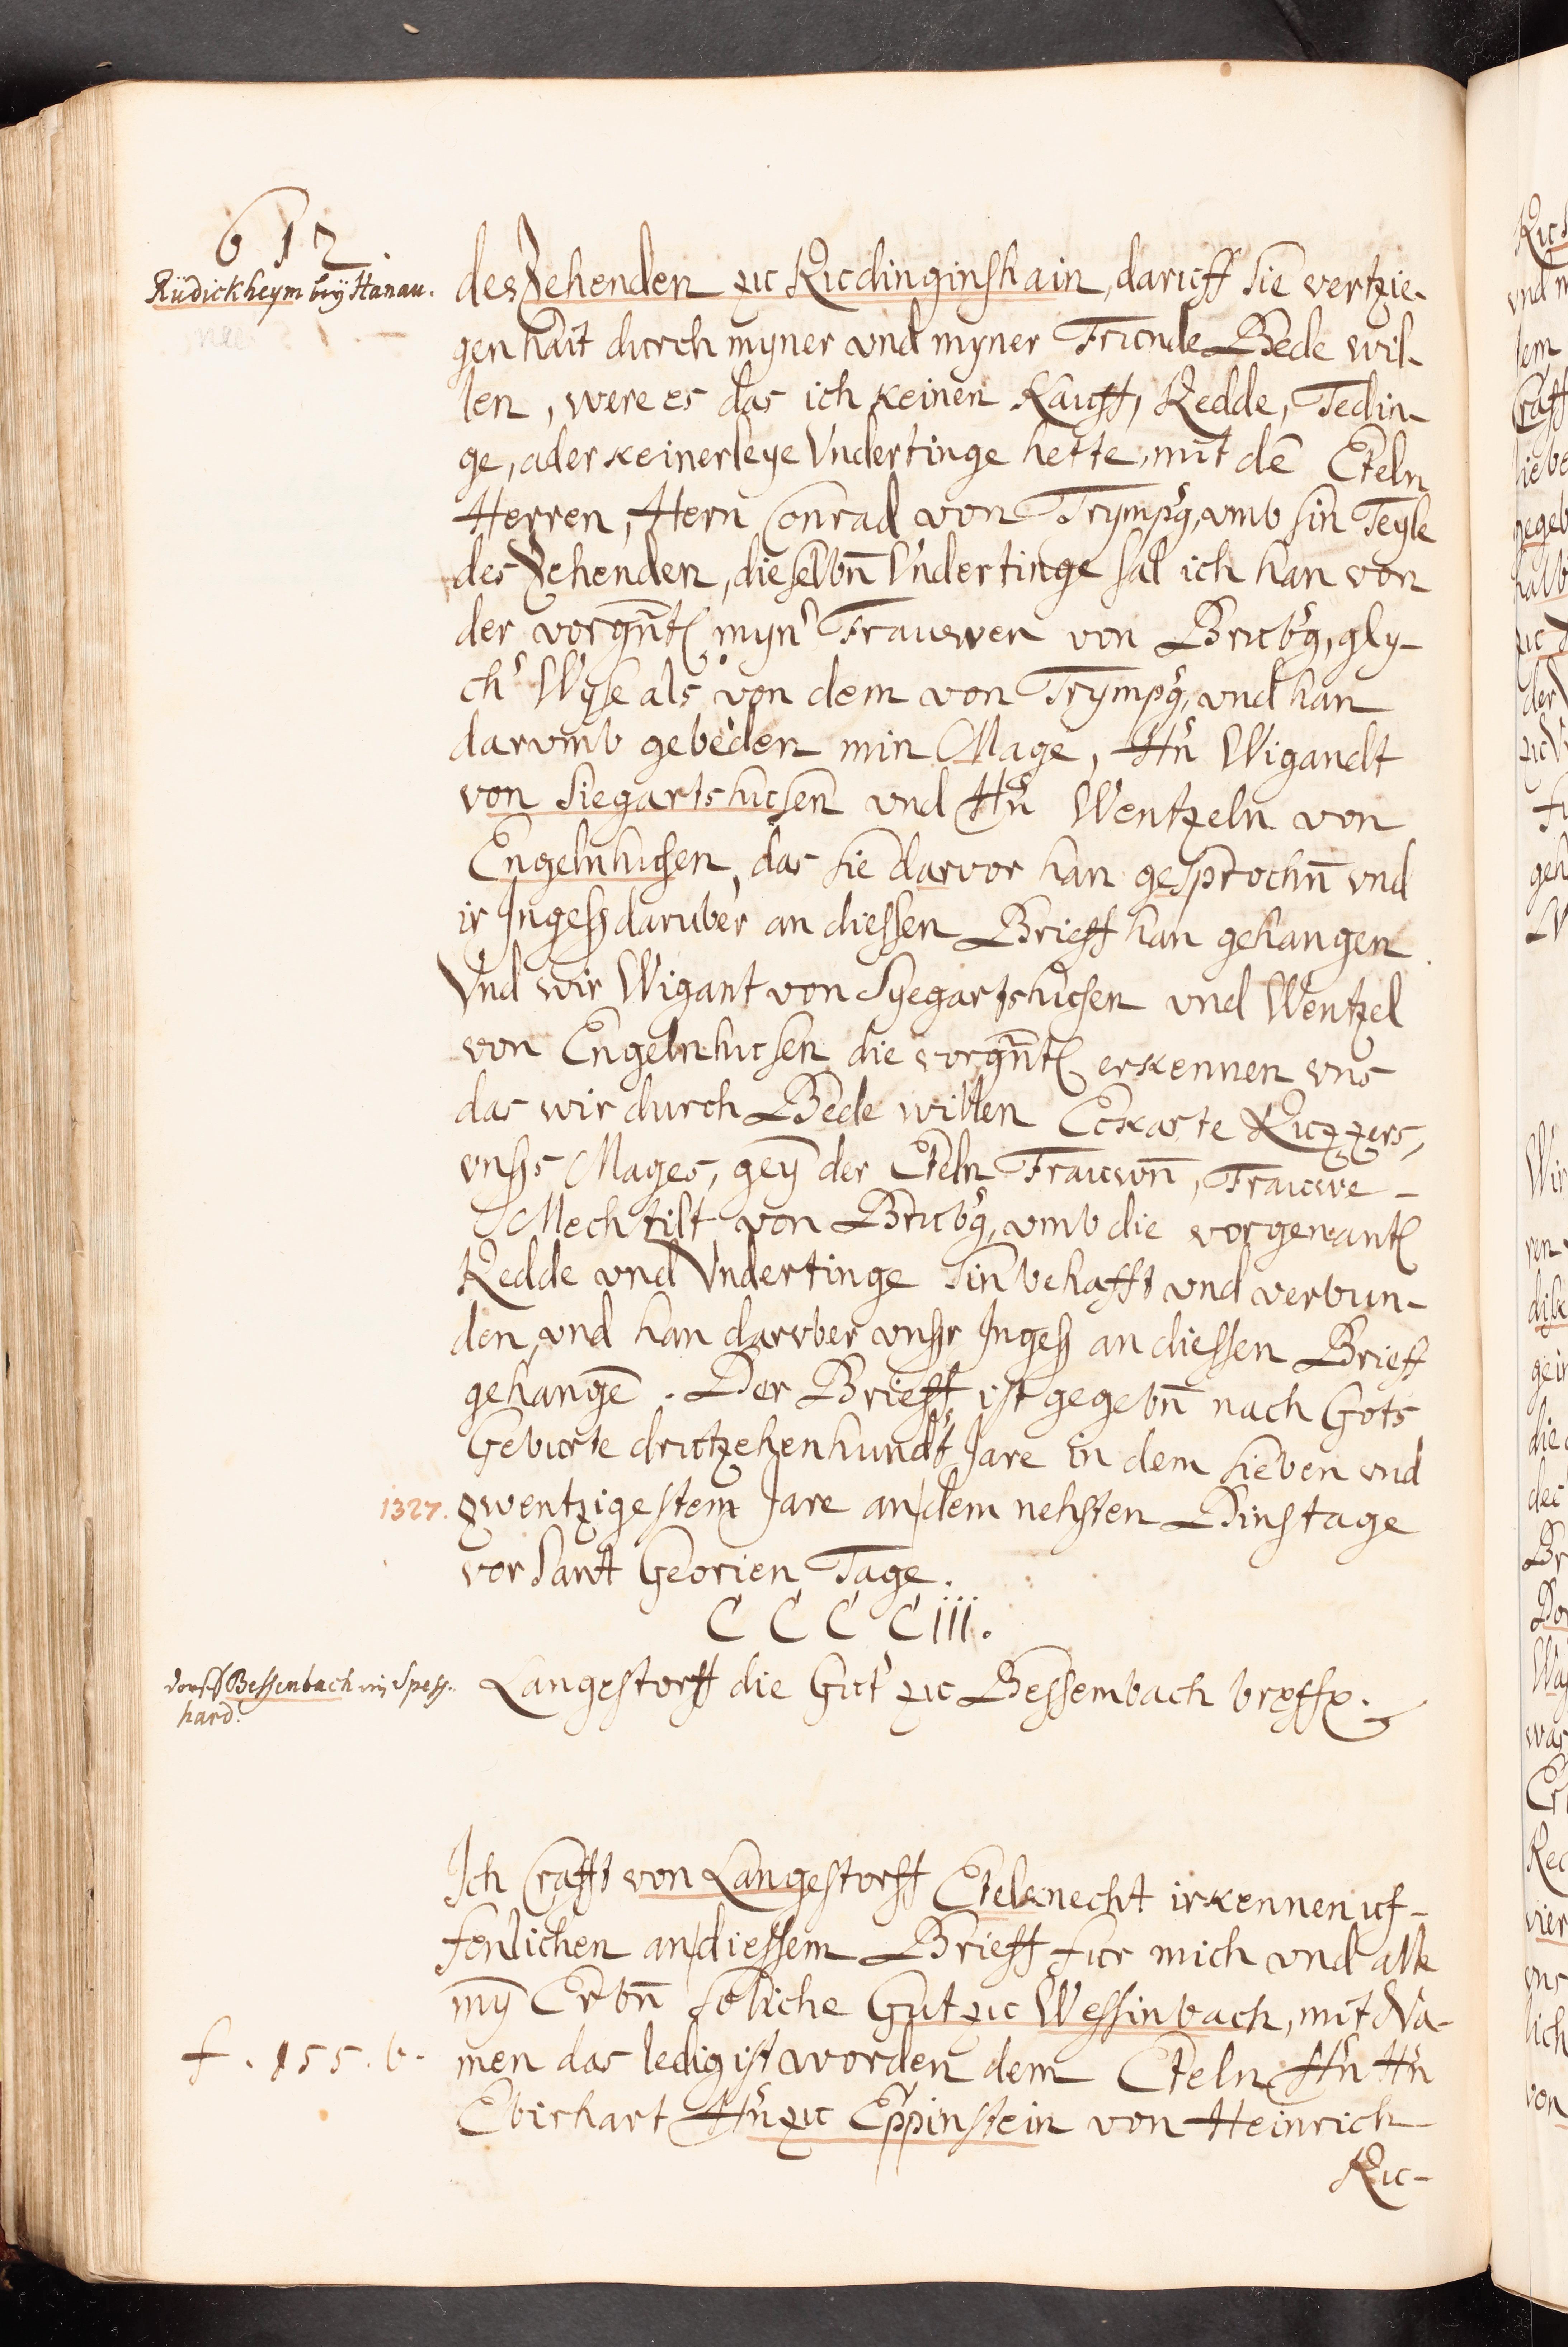 612
Rüdickheym bey Hanau.
des Zehenden zu Rudinginshain, daruff sie vertzie-
gen hait durch myner vnd myner Frunde Bede wil-
len, were es das ich keinen Kauff, Redde, Tedin-
ge, ader keinerleye Vndertinge hette, mit dē Eteln
Herren, Hern Conrad von Trympg, vmb sin Teyle
des Zehenden, dieselbn̄ Vndertinge sal ich han von
der vorgn̄t myn' Frauwen von Brubg, gly-
ch' Wyse als von dem von Trympg, vnd han
darvmb gebeden min Mage, Hn̄ Wigandt
von Siegartshusen vnd Hn̄ Wentzeln von
Engelnhusen, das sie darvor han gesprochn̄ vnd
ir Ingeß daruber an diessen Brieff han gehangen.
Vnd wir Wigant von Syegartshusen vnd Wentzel
von Engelnhusen die vorgn̄t erkennen vns
das wir durch Bede willen Eckarte Ruzzers,
vnßs Mages, gey der Eteln Frauwn̄, Frauwe
Mechtilt von Brubg, vmb die vorgenant
Redde vnd Vndertinge sin behafft vnd verbun-
den, vnd han darvber vnßr Ingeß an diessen Brieff
gehangē. Der Brieff ist gegebn̄ nach Gots
Geburte drutzehenhundt Jare in dem sieben vnd
1327. zwentzigestem Jare an dem nehsten Dinstage
vor Sant Georien Tage.
CCCCiii.
Bessenbach im Speß-
hard.
Langestorff die Gut zu Bessembach
Ich Crafft von Langestorff Etelknecht irkennen uf-
fenlichen an diessem Brieff fur mich vnd alle
mȳ Erbn̄ soliche Gut zu Wessinbach, mit Na-
f. 155. b.
men das ledig ist worden dem Eteln Hn̄ Hn̄
Ebirhart Hn̄ zu Eppinstein von Heinrich
Ru-